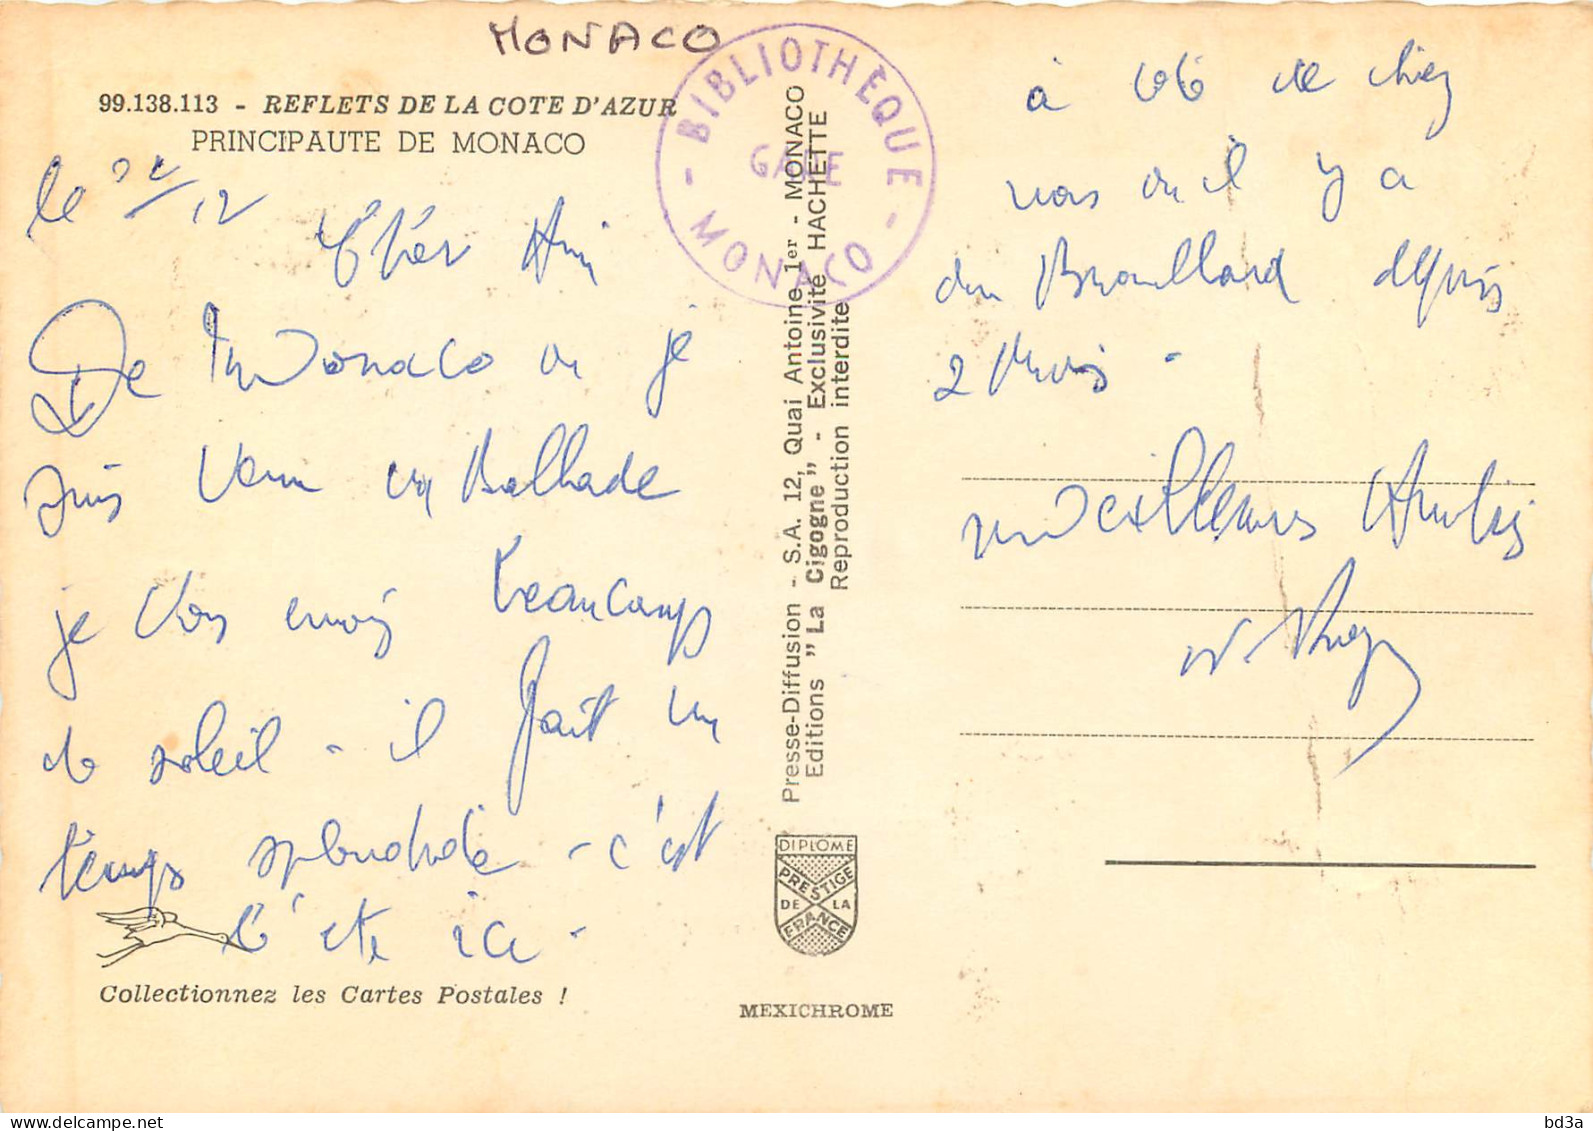 MONACO
99.138.113 - REFLETS DE LA COTE D'AZUR
PRINCIPAUTE DE MONACO
- BIBLIOTHÈQUE -
GARE
MONACO
le /12
Cher Ami
De Monaco ou je
suis venu en Ballade
je vous envois beaucoup
de soleil - il fait un
temps splendide - c'est
l'été ici -
Collectionnez les Cartes Postales !
Presse-Diffusion - S.A. 12, Quai Antoine 1er - MONACO
Editions "La Cigogne" - Exclusivité HACHETTE
Reproduction interdite
DIPLOME
PRESTIGE
DE LA
FRANCE
MEXICHROME
à coté de chez
vous ou il y a
du Brouillard depuis
2 Mois -
Meilleures Amitiés